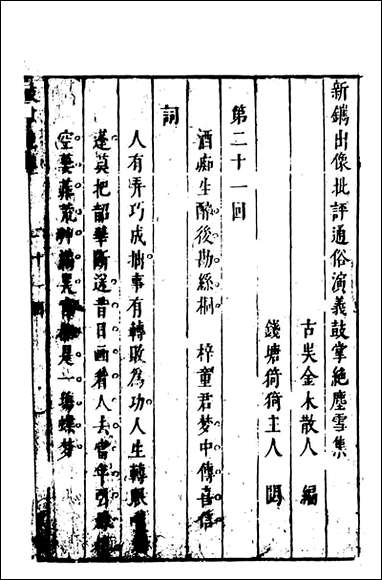 新鐫出像批評通俗演義鼓掌絕塵雪集
古吳金木散人　編
錢塘猗猗主人　閱
第二十一回
酒痴生醉後勘絲桐　梓童君夢中傳喜信
詞
人有弄巧成拙事有轉敗為功人生轉眼
蓬莫把韶華斷送昔日画眉人去當年引
空萋蕪荒艸　是一　蝶夢